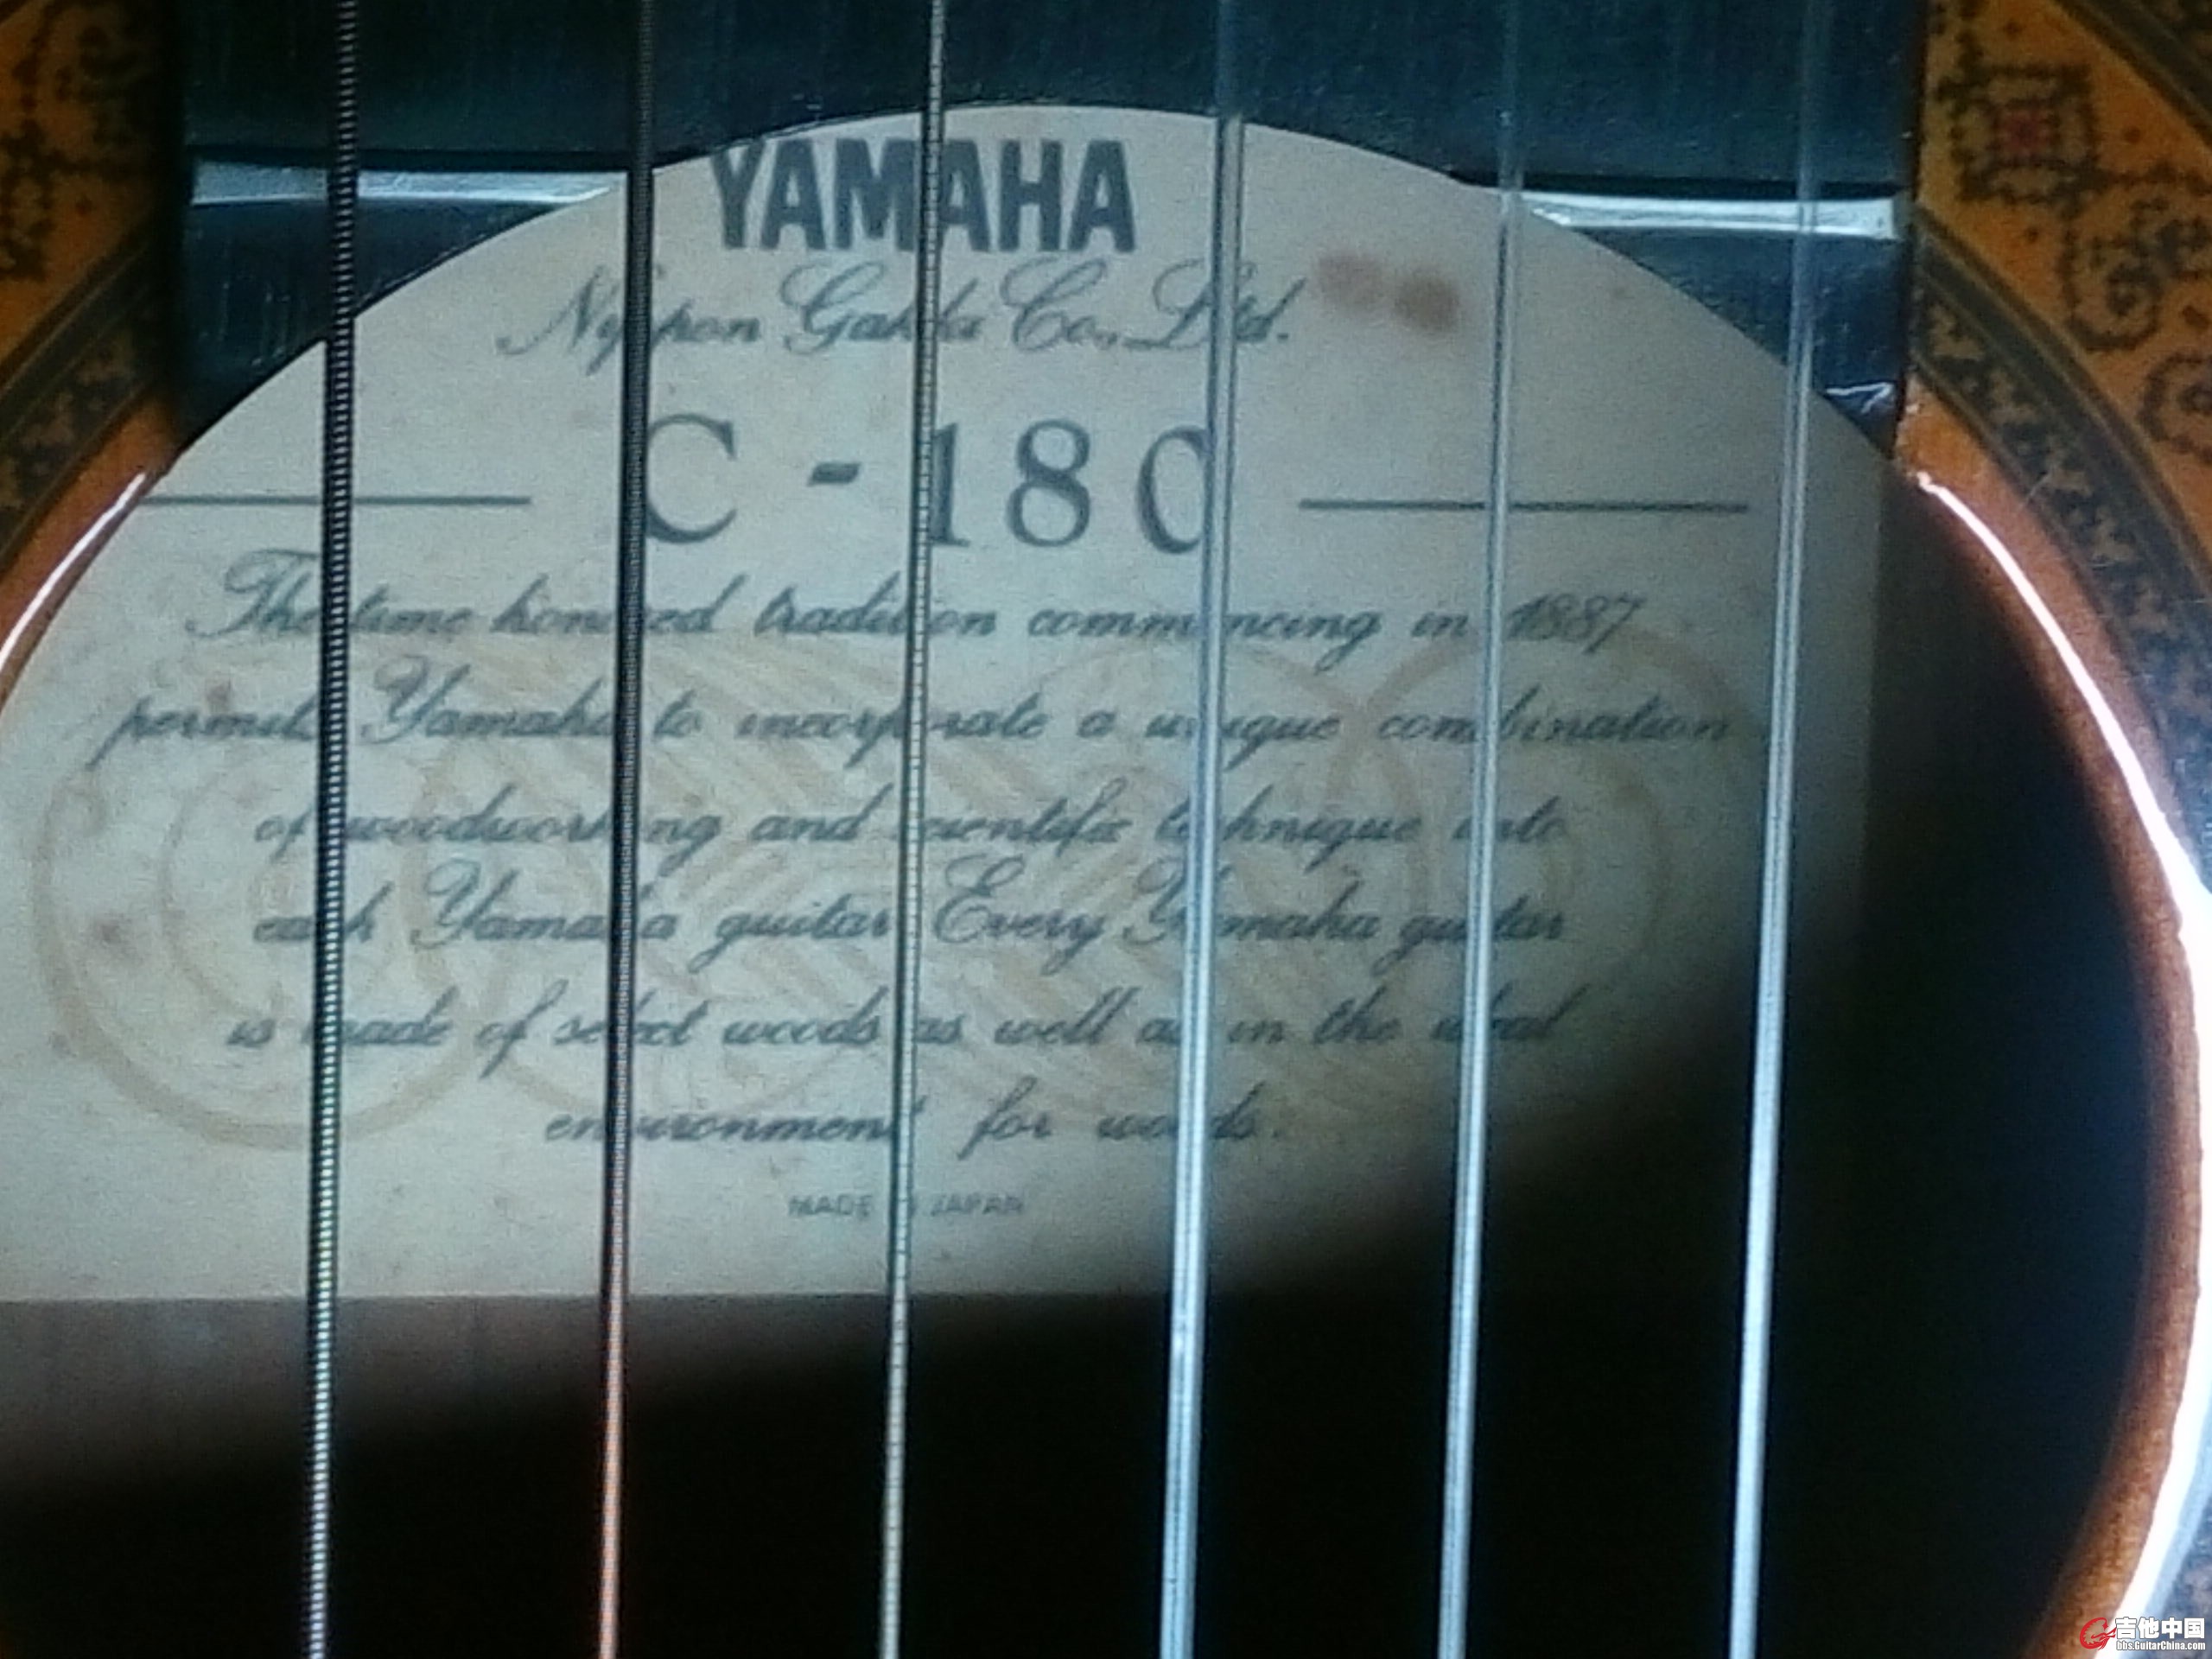 YAMAHA
Nippon Gakki Co., Ltd.
C - 180
The time honored tradition commencing in 1887
permits Yamaha to incorporate a unique combination
of woodworking and scientific technique into
each Yamaha guitar Every Yamaha guitar
is made of select woods as well as in the ideal
environment for woods.
MADE IN JAPAN
吉他中国
bbs.GuitarChina.com